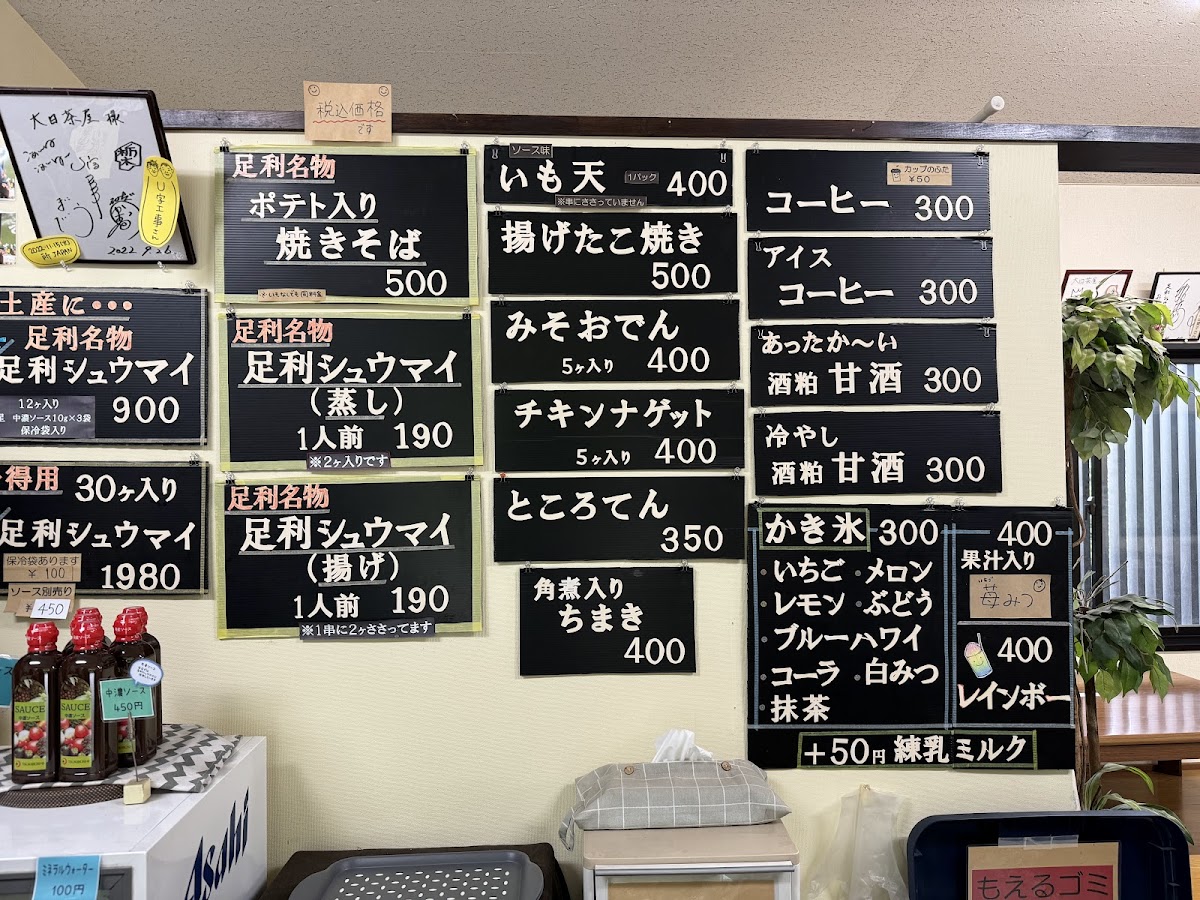 税込価格
です
大日茶屋 様
U字工事さん
2022.9.26
足利名物
ポテト入り
焼きそば
500
足利名物
足利シュウマイ
(蒸し)
1人前 190
※2ヶ入りです
足利名物
足利シュウマイ
(揚げ)
1人前 190
※1串に2ヶささってます
土産に・・・
足利名物
足利シュウマイ
12ヶ入り
中濃ソース10g×3袋
保冷袋入り
900
得用 30ヶ入り
足利シュウマイ
1980
保冷袋あります
¥100
ソース別売り
450
ソース味
いも天 1パック 400
※串にささっていません
揚げたこ焼き
500
みそおでん
5ヶ入り 400
チキンナゲット
5ヶ入り 400
ところてん
350
角煮入り
ちまき
400
カップのふた
¥50
コーヒー 300
アイス
コーヒー 300
あったか〜い
酒粕 甘酒 300
冷やし
酒粕 甘酒 300
かき氷 300
いちご メロン
レモン ぶどう
ブルーハワイ
コーラ 白みつ
抹茶
400
果汁入り
いちご
苺みつ
400
レインボー
+50円 練乳ミルク
SAUCE
SAUCE
中濃ソース
450円
Asahi
ミネラルウォーター
100円
もえるゴミ